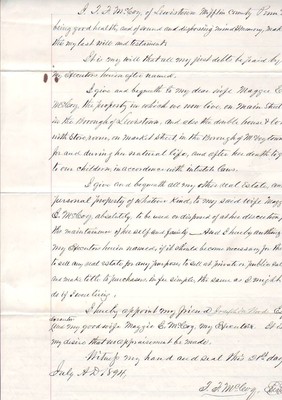 I T. F. McCoy, of Lewistown Mifflin County Penn
being good health, and of sound and disposing mind & memory, make
this my last will and testament.
It is my will that all my just debts be paid by
my Executors herein after named.
I give and bequeath to my dear wife Maggie E
McCoy, the property in which we now live, on Main Street
in the Borough of Lewistown, and also the double house & lot
with store room, on Market Street, in the Borough of McVeytown
for and during her natural life, and after her death to go
to our children in accordance with intestate laws.
I give and bequeath all my other real estate, and
personal property of whatever kind, to my said wife Maggie
E. McCoy, absolutely to be used or disposed of at her discretion, for
the maintainance of herself and family — And I hereby authorize
my Executors herein named, if it should become necessary for them
to sell my real estate for any purpose, to sell at private or public sale
and make title to purchasers in fee simple, the same as I might
do if I was living.
I hereby appoint my friend
and my good wife Maggie E. McCoy, my Executors. It is
my desire that no appraisement be made.
Witness my hand and seal this 21st day
July A.D. 1891.
T. F. McCoy